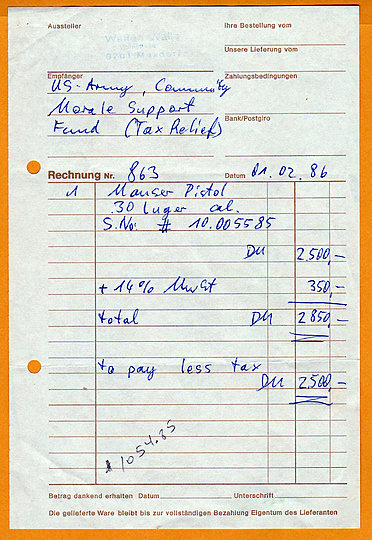 Aussteller
Ihre Bestellung vom
Unsere Lieferung vom
Empfänger
Zahlungsbedingungen
US-Army, Community
Morale Support
Bank/Postgiro
Fund (Tax Relief)
Rechnung Nr. 863 Datum 01.02.86
1 Mauser Pistol
.30 luger cal.
S.No: # 10.005585
DM 2.500,-
+ 14% MwSt 350,-
total DM 2850,-
to pay less tax
DM 2.500,-
$1054.85
Betrag dankend erhalten Datum Unterschrift
Die gelieferte Ware bleibt bis zur vollständigen Bezahlung Eigentum des Lieferanten